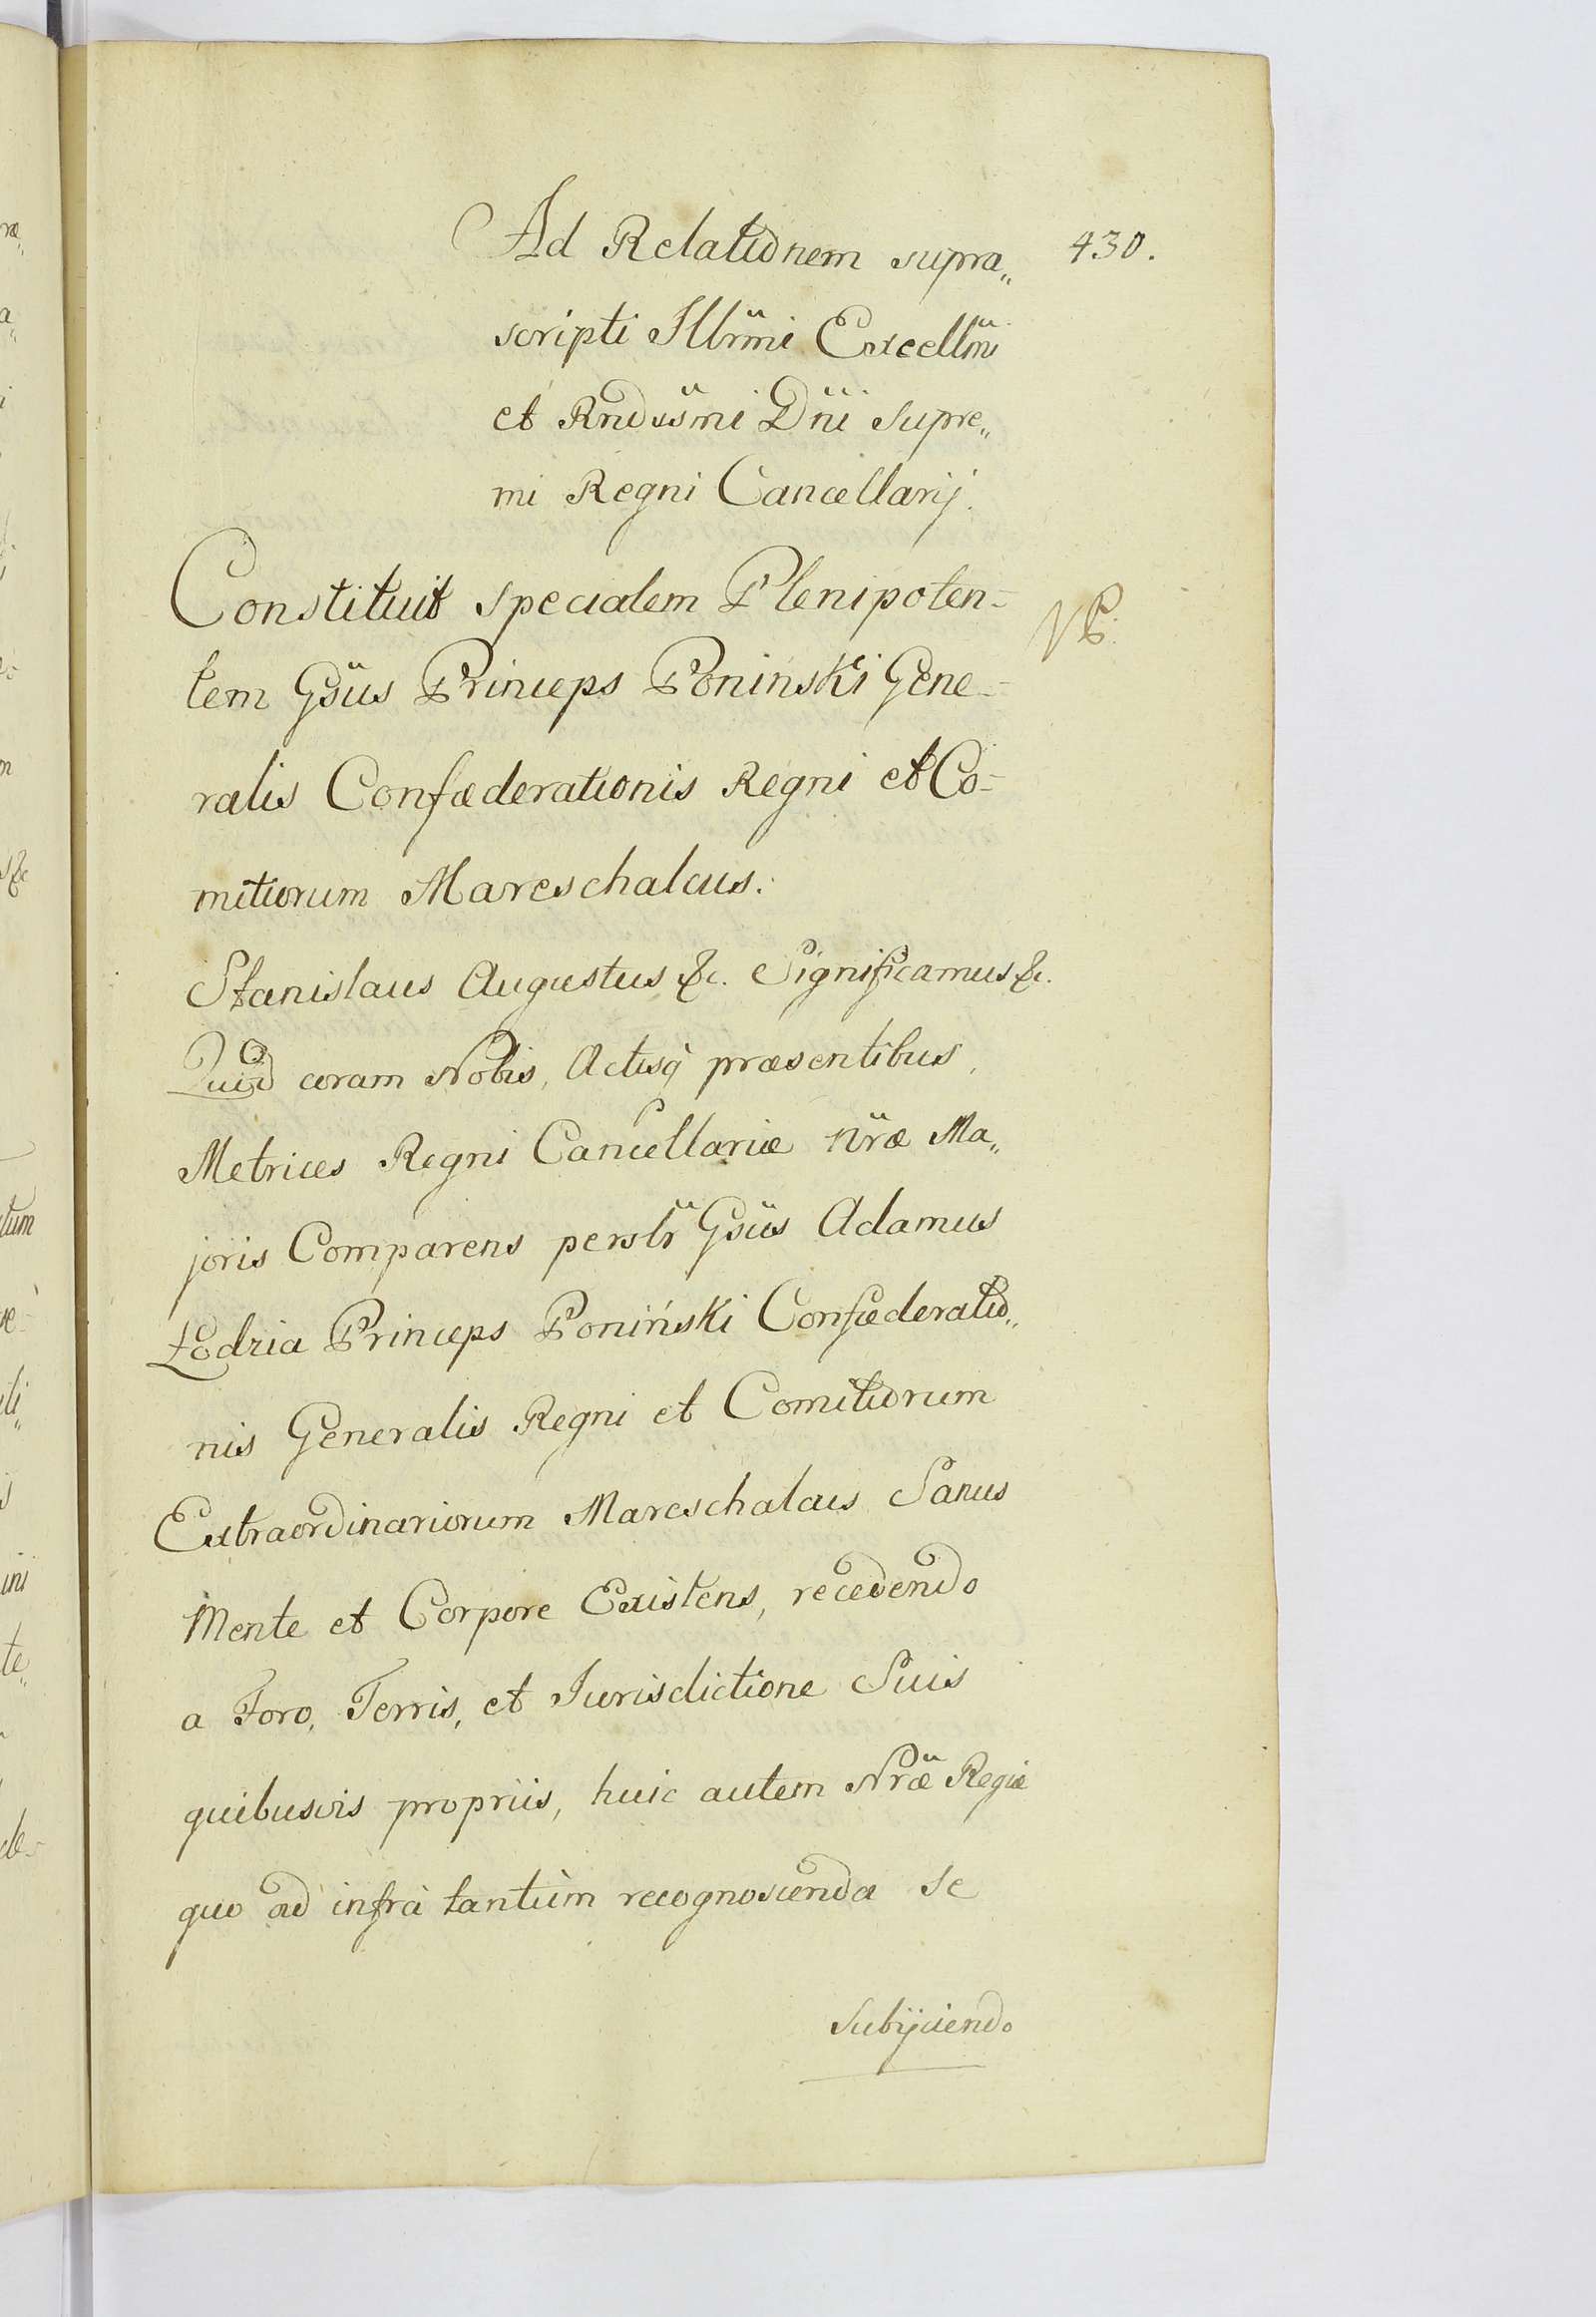 Ad Relationem supra„
430.
scripti Illrm̃i Excellm̃i
et Rndissmi Dñi Supre„
mi Regni Cancellarij.
Constituit specialem Plenipoten=
NB.
tem Gsũs Princeps Poninski Gene=
ralis Confæderationis Regni et Co=
mitiorum Mareschalcus.
Stanislaus Augustus &c. Significamus &c.
Quod coram Nobis, Actisq̃ præsentibus,
Metrices Regni Cancellariæ nr̃æ Ma„
joris Comparens perslr̃ Gsũs Adamus
Łodzia Princeps Poniński Confæderatio„
nis Generalis Regni et Comitiorum
Extraordinariorum Mareschalcus Sanus
Mente et Corpore Existens, recedendo
a Foro, Terris, et Jurisdictione Suis
quibusvis propriis, huic autem Nr̃æ Regiæ
quo ad infrà tantùm recognoscenda se
subijciendo